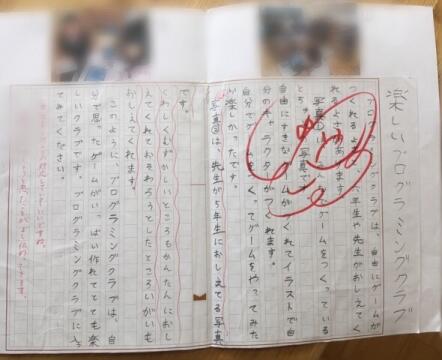 楽しいプログラミングクラブ
プログラミングクラブは、自由にゲームが
つくれるよ 六年生や先生がおしえてく
れるよさがあります。
写真①は、 でゲームをつくっている
とき 写真です。
自由にすきなゲームが くれてイラストで自
分のキャラクターがつくれます。
自分でゲームをつくってゲームをやってみた
が楽しかったです。
写真②は、先生が5年生におしえてる写真
です。
くわしくむずかしいところもかんたんにおし
えてくれておそわろうとしたところいがいも
おしえてくれます。
このように、プログラミングクラブは、自
分で思ったゲームがいっぱい作れてとても楽
しいクラブです。プログラミングクラブに入っ
てみてください。